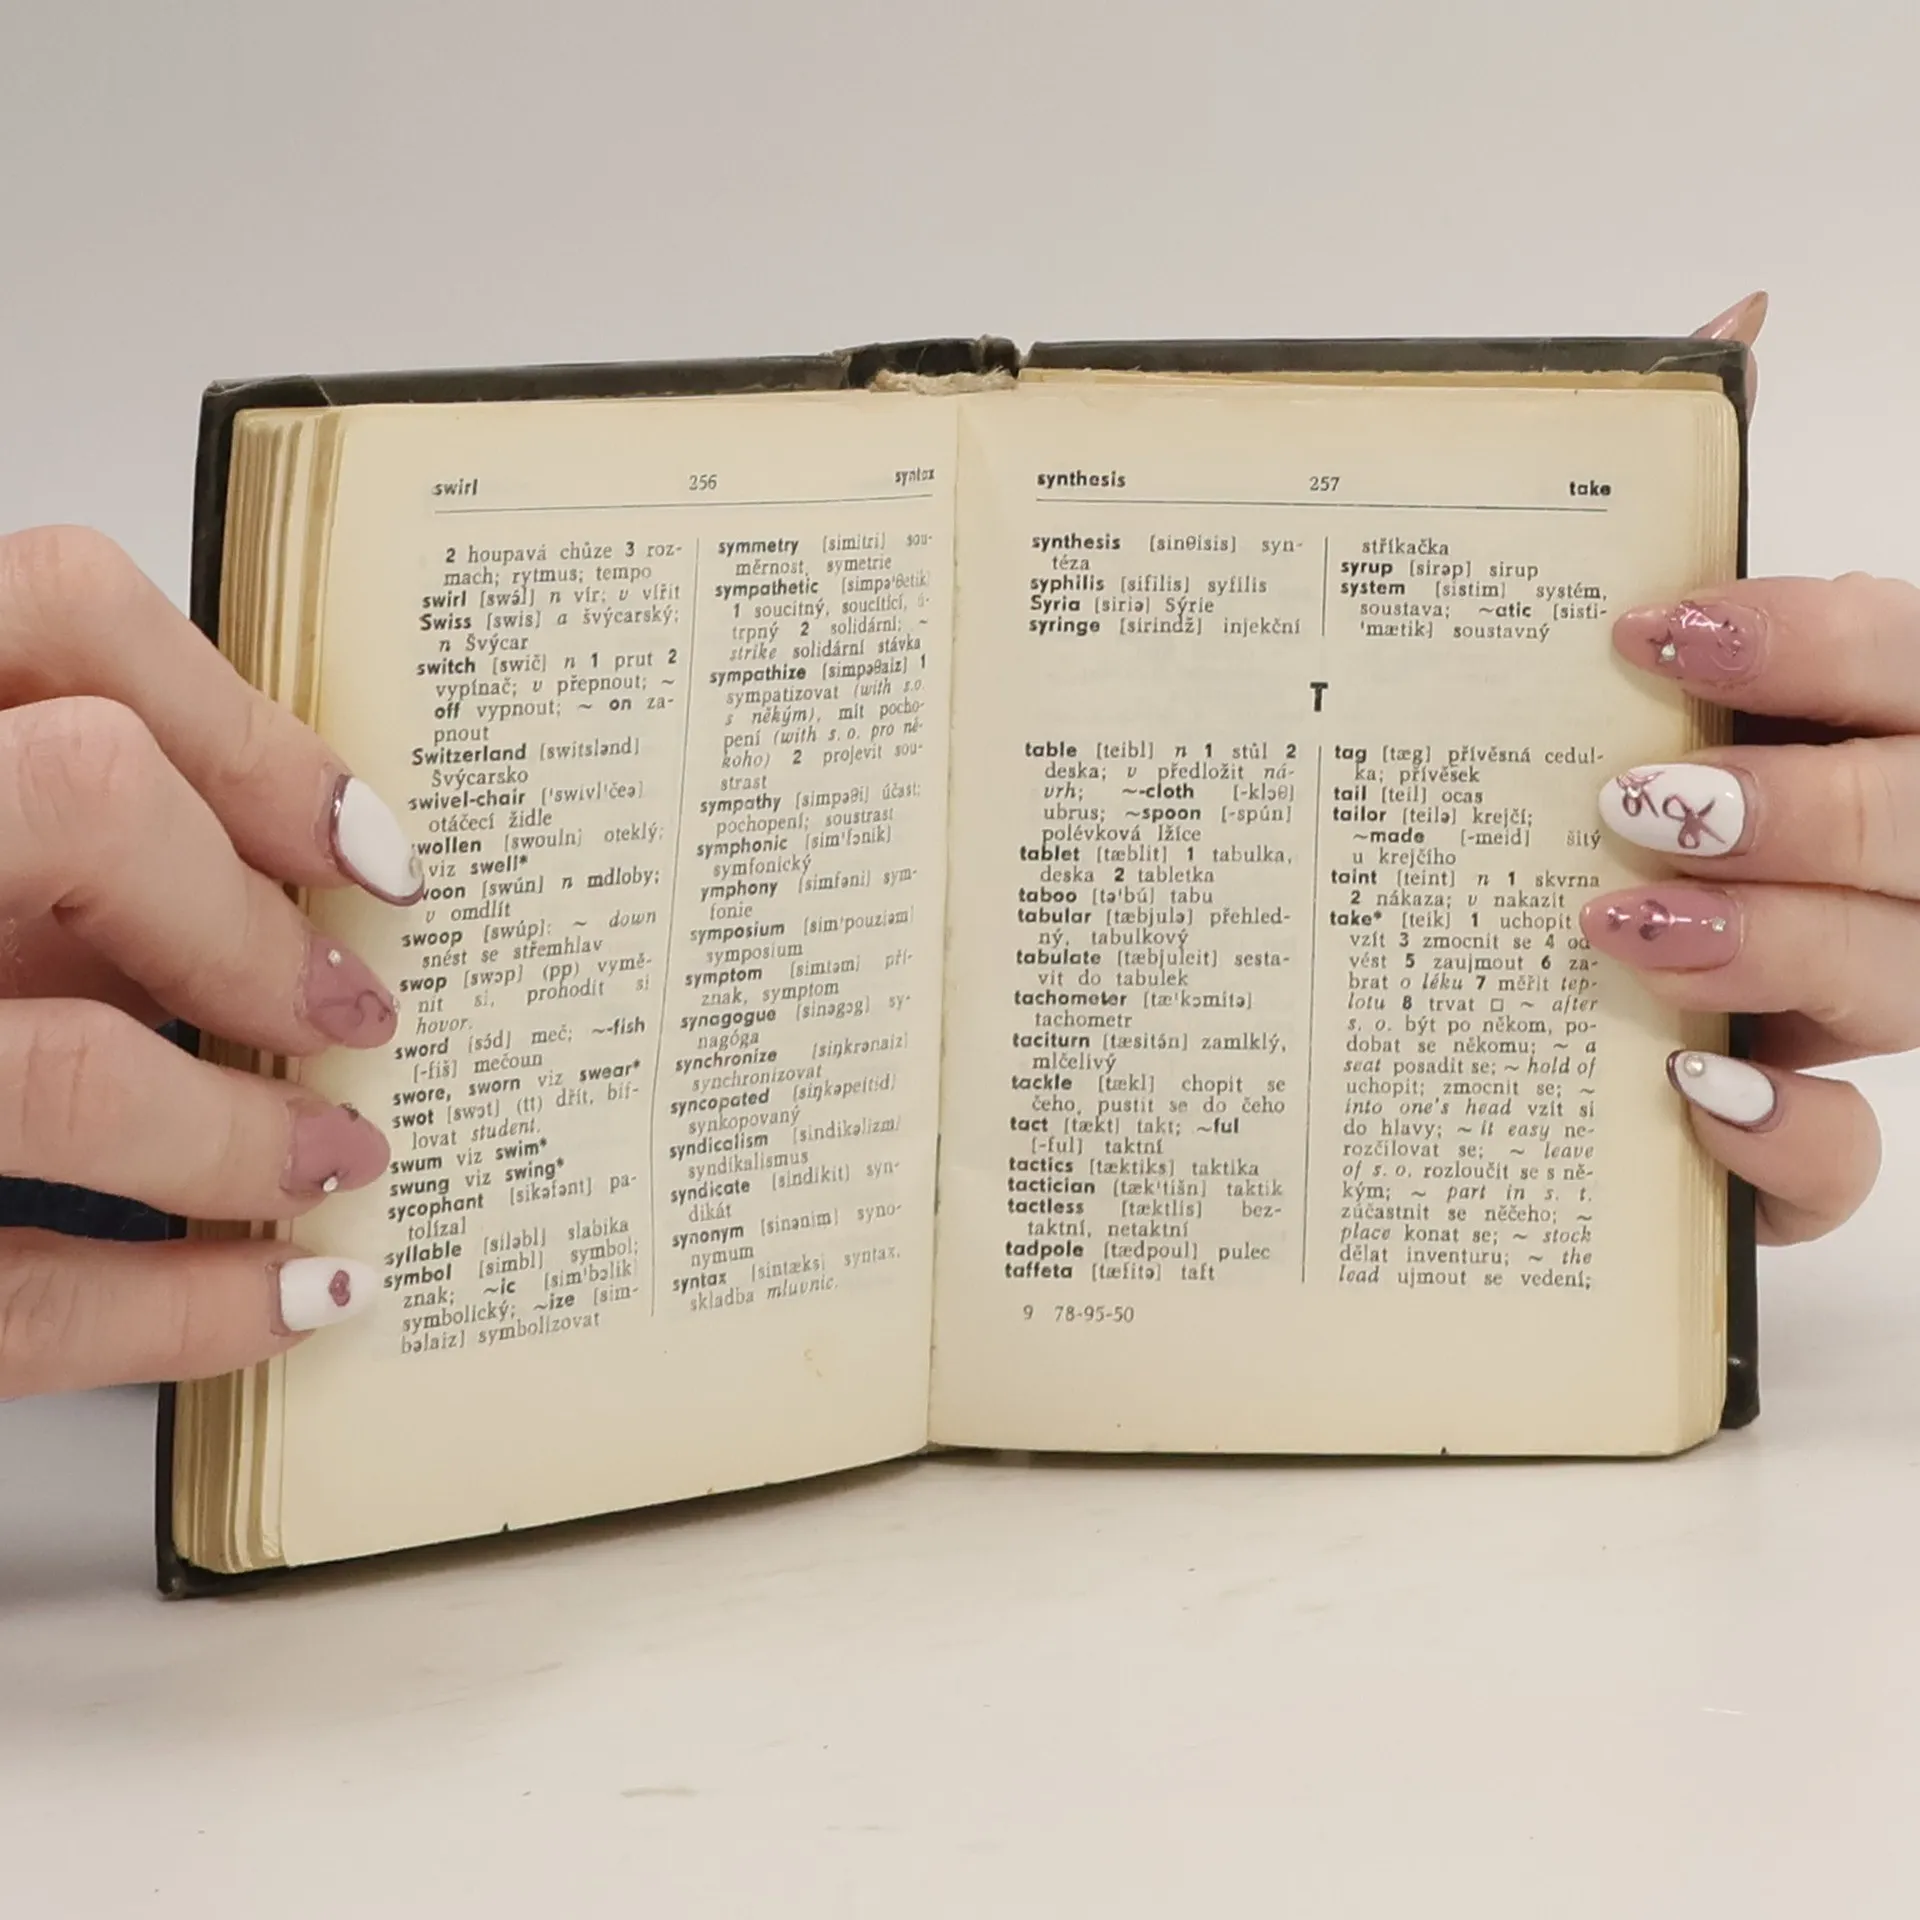 swirl 256 syntax
2 houpavá chůze 3 roz-
mach; rytmus; tempo
swirl [swə́l] n vír; v vířit
Swiss [swis] a švýcarský;
n Švýcar
switch [swič] n 1 prut 2
vypínač; v přepnout; ~
off vypnout; ~ on za-
pnout
Switzerland [switslənd]
Švýcarsko
swivel-chair ['swivl'čeə]
otáčecí židle
wollen [swouln] oteklý;
viz swell*
woon [swún] n mdloby;
v omdlít
swoop [swúp]: ~ down
snést se střemhlav
swop [swɔp] (pp) vymě-
nit si, prohodit si
hovor.
sword [sód] meč; ~-fish
[-fiš] mečoun
swore, sworn viz swear*
swot [swɔt] (tt) dřít, bif-
lovat student.
swum viz swim*
swung viz swing*
sycophant [sikəfənt] pa-
tolízal
syllable [siləbl] slabika
symbol [simbl] symbol;
znak; ~ic [sim'bɔlik]
symbolický; ~ize [sim-
bəlaiz] symbolizovat
symmetry [simitri] sou-
měrnost, symetrie
sympathetic [simpə'θetik]
1 soucitný, soucítící, ú-
trpný 2 solidární; ~
strike solidární stávka
sympathize [simpəθaiz] 1
sympatizovat (with s.o.
s někým), mít pocho-
pení (with s. o. pro ně-
koho) 2 projevit sou-
strast
sympathy [simpəθi] účast;
pochopení; soustrast
symphonic [sim'fɔnik]
symfonický
ymphony [simfəni] sym-
fonie
symposium [sim'pouzjəm]
symposium
symptom [simtəm] pří-
znak, symptom
synagogue [sinəgɔg] sy-
nagóga
synchronize [siŋkrənaiz]
synchronizovat
syncopated [siŋkəpeitid]
synkopovaný
syndicalism [sindikəlizm]
syndikalismus
syndicate [sindikit] syn-
dikát
synonym [sinənim] syno-
nymum
syntax [sintæks] syntax,
skladba mluvnic.
synthesis 257 take
synthesis [sinθisis] syn-
téza
syphilis [sifilis] syfilis
Syria [siriə] Sýrie
syringe [sirindž] injekční
stříkačka
syrup [sirəp] sirup
system [sistim] systém,
soustava; ~atic [sisti-
'mætik] soustavný
T
table [teibl] n 1 stůl 2
deska; v předložit ná-
vrh; ~-cloth [-klɔθ]
ubrus; ~spoon [-spún]
polévková lžíce
tablet [tæblit] 1 tabulka,
deska 2 tabletka
taboo [tə'bú] tabu
tabular [tæbjulə] přehled-
ný, tabulkový
tabulate [tæbjuleit] sesta-
vit do tabulek
tachometer [tæ'kɔmitə]
tachometr
taciturn [tæsitə́n] zamlklý,
mlčelivý
tackle [tækl] chopit se
čeho, pustit se do čeho
tact [tækt] takt; ~ful
[-ful] taktní
tactics [tæktiks] taktika
tactician [tæk'tišn] taktik
tactless [tæktlis] bez-
taktní, netaktní
tadpole [tædpoul] pulec
taffeta [tæfitə] taft
tag [tæg] přívěsná cedul-
ka; přívěsek
tail [teil] ocas
tailor [teilə] krejčí;
~made [-meid] šitý
u krejčího
taint [teint] n 1 skvrna
2 nákaza; v nakazit
take* [teik] 1 uchopit
vzít 3 zmocnit se 4 od
vést 5 zaujmout 6 za-
brat o léku 7 měřit tep-
lotu 8 trvat □ ~ after
s. o. být po někom, po-
dobat se někomu; ~ a
seat posadit se; ~ hold of
uchopit; zmocnit se; ~
into one's head vzít si
do hlavy; ~ it easy ne-
rozčilovat se; ~ leave
of s. o. rozloučit se s ně-
kým; ~ part in s. t.
zúčastnit se něčeho; ~
place konat se; ~ stock
dělat inventuru; ~ the
lead ujmout se vedení;
9 78-95-50